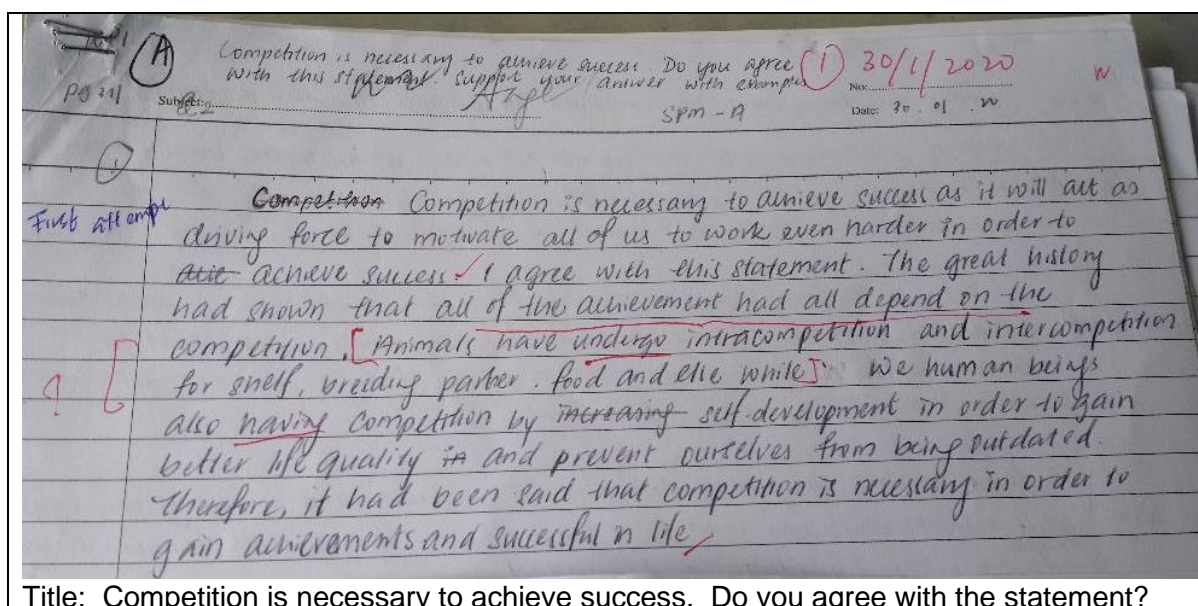 A
Competition is necessary to achieve success. Do you agree
with this statement. Support your answer with example
1 30/1/2020
No:
Pg 211
Subject:
SPM - A
Date: 30 . 01 . 20
1
First attempt
Competition Competition is necessary to achieve success as it will act as
driving force to motivate all of us to work even harder in order to
achieve success. I agree with this statement. The great history
had shown that all of the achievement had all depend on the
competition. [Animals have undergo intracompetition and intercompetition
for shelf, breeding partner. food and else while]. We human beings
?
also having competition by increasing self-development in order to gain
better life quality in and prevent ourselves from being outdated.
Therefore, it had been said that competition is necessary in order to
gain achievements and successful in life
Title: Competition is necessary to achieve success. Do you agree with the statement?